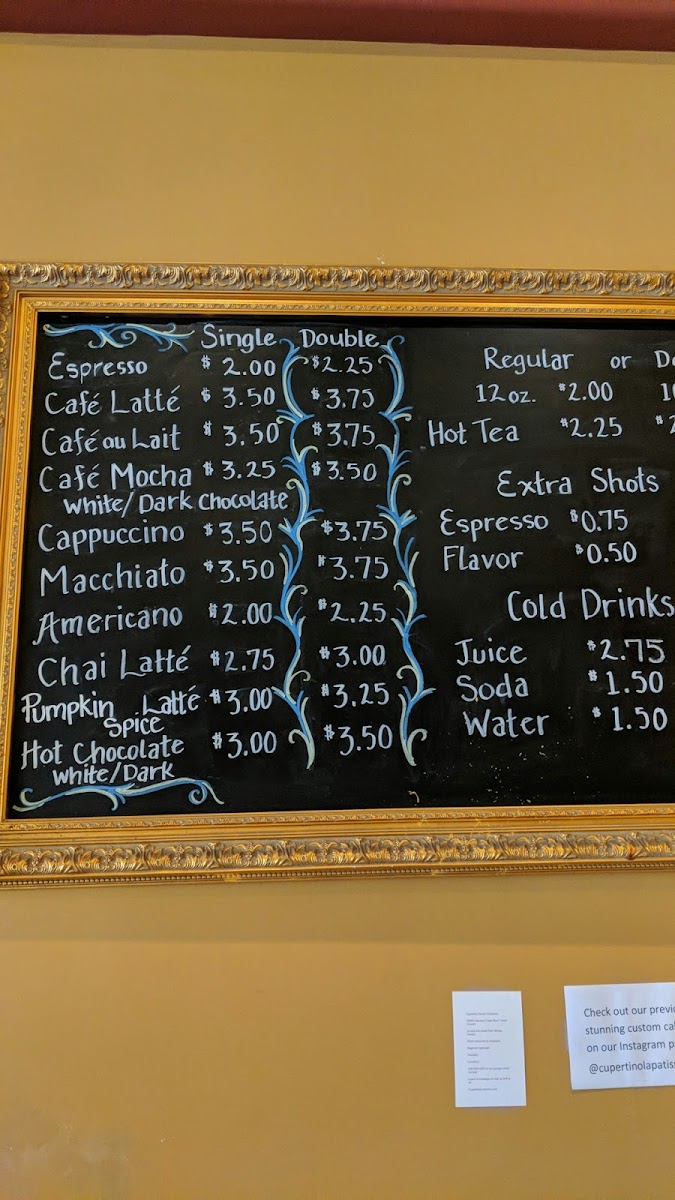 Single Double
Espresso $2.00 $2.25
Café Latté $3.50 $3.75
Café au Lait $3.50 $3.75
Café Mocha $3.25 $3.50
White/Dark Chocolate
Cappuccino $3.50 $3.75
Macchiato $3.50 $3.75
Americano $2.00 $2.25
Chai Latté $2.75 $3.00
Pumpkin Latté $3.00 $3.25
Spice
Hot Chocolate $3.00 $3.50
White/Dark
Regular or D
12oz. $2.00 1
Hot Tea $2.25 $2
Extra Shots
Espresso $0.75
Flavor $0.50
Cold Drinks
Juice $2.75
Soda $1.50
Water $1.50
Check out our previo
stunning custom ca
on our Instagram p
@cupertinolapatis